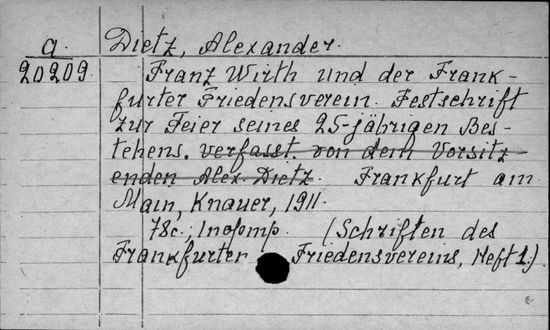 a. Dietz, Alexander.
20209. Franz Wirth und der Frank-
furter Friedensverein. Festschrift
zur Feier seines 25-jährigen Bes-
tehens. verfasst von dem Vorsitz-
enden Alex. Dietz. Frankfurt am
Main, Knauer, 1911.
78c., (Schriften des
Frankfurter Friedensvereins, Heft 1.)